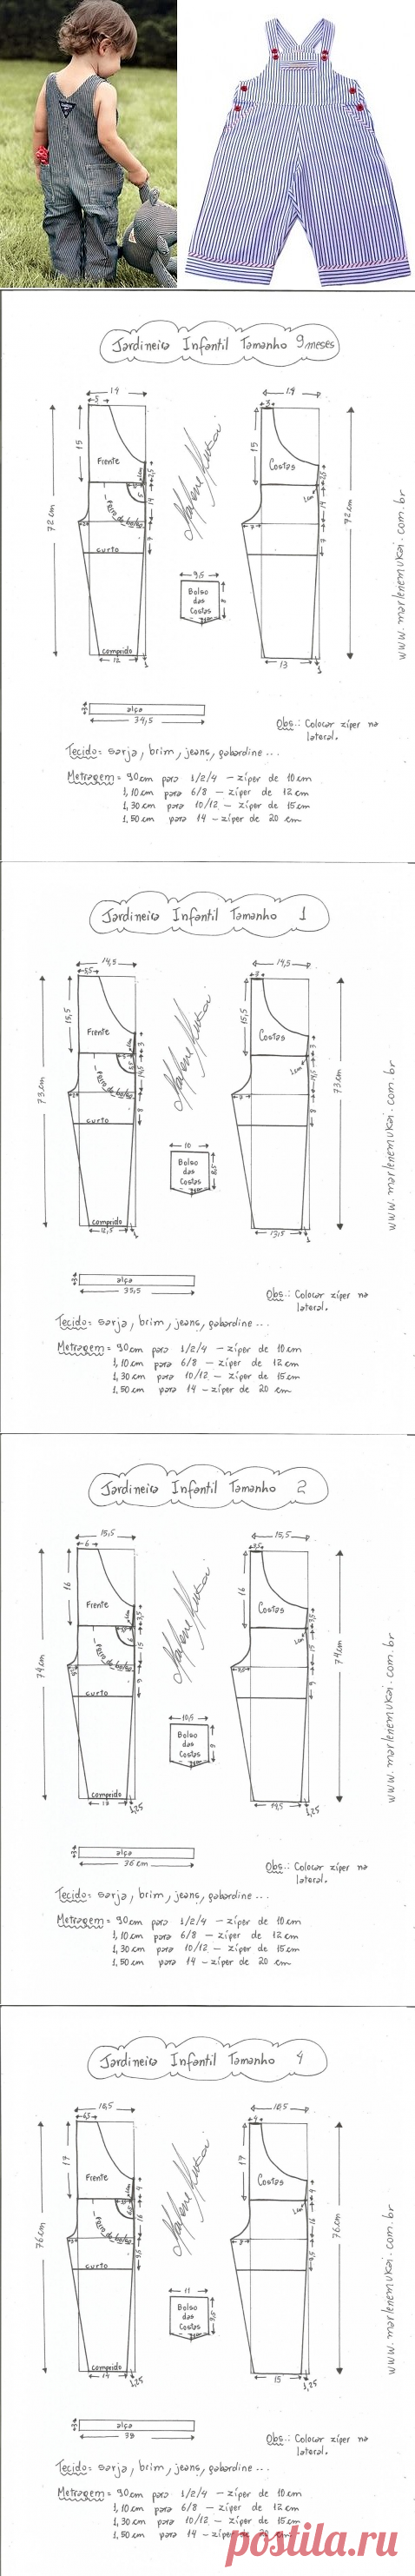 Jardineira Infantil Tamanho 9 meses
14
5
15
72 cm
Frente
Forro do bolso
curto
comprido
12
1
14
3
15
Costas
72 cm
7
13
1
9,5
Bolso
das
Costas
alça
34,5
Obs.: Colocar zíper na
lateral.
Tecido= sarja, brim, jeans, gabardine...
Metragem= 90cm para 1/2/4 - zíper de 10 cm
1,10 cm para 6/8 - zíper de 12 cm
1,30 cm para 10/12 - zíper de 15 cm
1,50 cm para 14 - zíper de 20 cm
www.marlenemukai.com.br
Jardineira Infantil Tamanho 1
14,5
5,5
15,5
73 cm
Frente
Forro do bolso
curto
comprido
12,5
1
14,5
15,5
Costas
73 cm
8
13,5
1
10
Bolso
das
Costas
alça
35,5
Obs.: Colocar zíper na
lateral.
Tecido= sarja, brim, jeans, gabardine...
Metragem= 90cm para 1/2/4 - zíper de 10 cm
1,10 cm para 6/8 - zíper de 12 cm
1,30 cm para 10/12 - zíper de 15 cm
1,50 cm para 14 - zíper de 20 cm
www.marlenemukai.com.br
Jardineira Infantil Tamanho 2
15,5
6
16
74 cm
Frente
Forro do bolso
curto
comprido
13
1,25
15,5
3,5
16
Costas
74 cm
9
14,5
1,25
10,5
Bolso
das
Costas
alça
36 cm
Obs.: Colocar zíper na
lateral.
Tecido= sarja, brim, jeans, gabardine...
Metragem= 90cm para 1/2/4 - zíper de 10 cm
1,10 cm para 6/8 - zíper de 12 cm
1,30 cm para 10/12 - zíper de 15 cm
1,50 cm para 14 - zíper de 20 cm
www.marlenemukai.com.br
Jardineira Infantil Tamanho 4
16,5
6,5
17
76 cm
Frente
Forro do bolso
curto
comprido
14
1,25
16,5
4
17
Costas
76 cm
9,5
15
1,25
11
Bolso
das
Costas
9,5
alça
38
Obs.: Colocar zíper na
lateral.
Tecido= sarja, brim, jeans, gabardine...
Metragem= 90cm para 1/2/4 - zíper de 10 cm
1,10 cm para 6/8 - zíper de 12 cm
1,30 cm para 10/12 - zíper de 15 cm
1,50 cm para 14 - zíper de 20 cm
www.marlenemukai.com.br
postila.ru